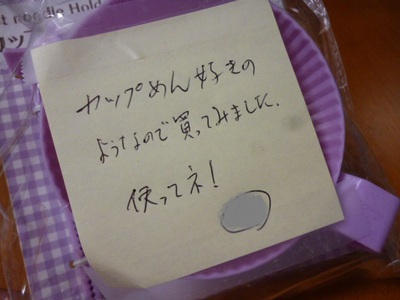 t noodle Hold
カップ
カップめん好きの
ようなので買ってみました.
使ってネ!